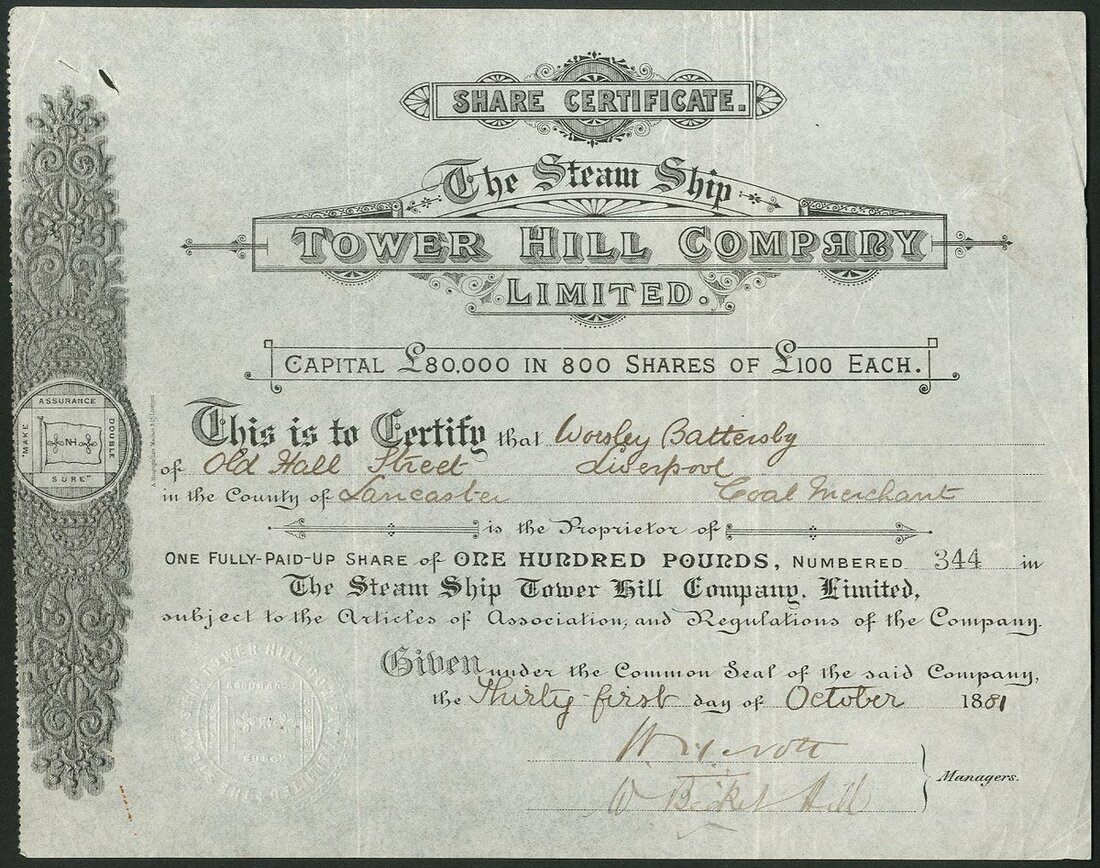 SHARE CERTIFICATE.
The Steam Ship
TOWER HILL COMPANY
LIMITED.
CAPITAL £80,000 IN 800 SHARES OF £100 EACH.
This is to Certify that Worsley Battersby
of Old Hall Street Liverpool
in the County of Lancaster Coal Merchant
is the Proprietor of
ONE FULLY-PAID-UP SHARE of ONE HUNDRED POUNDS, NUMBERED 344 in
The Steam Ship Tower Hill Company, Limited,
subject to the Articles of Association, and Regulations of the Company.
Given under the Common Seal of the said Company,
the Thirty-first day of October 1881
W Becket Hill
Managers.
ASSURANCE
"MAKE
DOUBLE
SURE"
NH
TOWER HILL